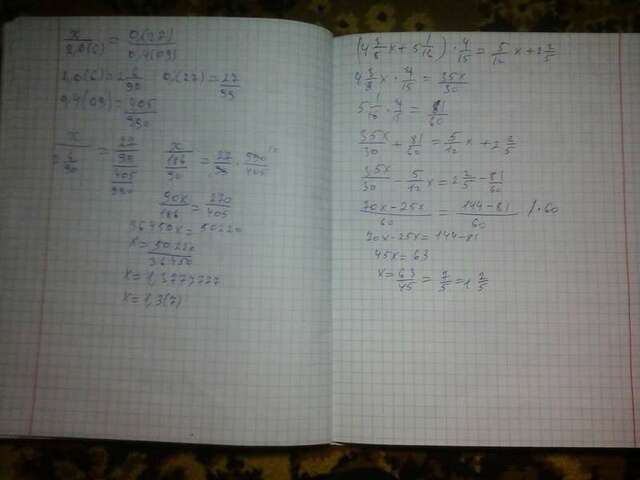 x/2,0(6) = 0,(27)/0,4(09)
2,0(6)=2 6/90 0,(27)=27/99
0,4(09)=405/990
x/(2 6/90) = (27/99)/(405/990) x/(186/90) = 27/99 · 990/405
90x/186 = 270/405
36450x=50220
x=50220/36450
x=1,3777777
x=1,3(7)
(4 3/8 x + 5 1/16) · 4/15 = 5/12 x + 2 2/5
4 3/8 x · 4/15 = 35x/30
5 1/16 · 4/15 = 81/60
35x/30 + 81/60 = 5/12 x + 2 2/5
35x/30 - 5/12 x = 2 2/5 - 81/60
(70x-25x)/60 = (144-81)/60 | · 60
70x-25x=144-81
45x=63
x=63/45=7/5=1 2/5